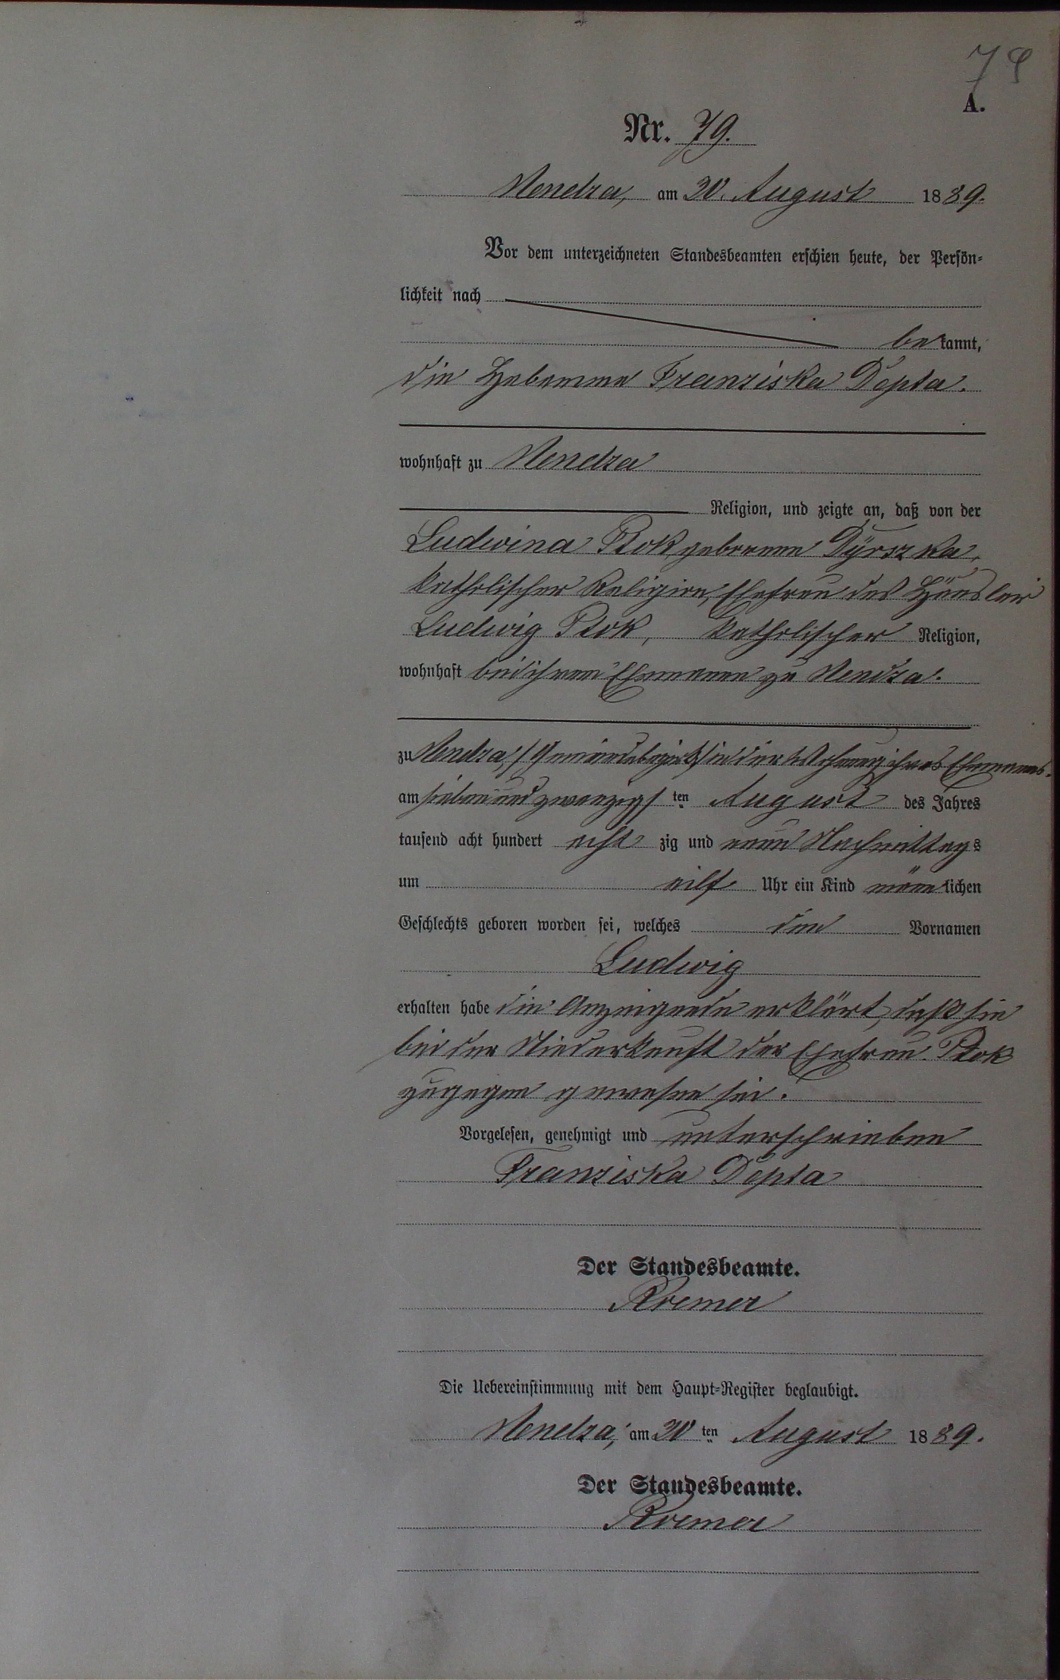 79
A.
Nr. 79.
Nendza, am 30. August 1889.
Vor dem unterzeichneten Standesbeamten erschien heute, der Persön-
lichkeit nach
bekannt,
die Hebamme Franziska Depta.
wohnhaft zu Nendza
Religion, und zeigte an, daß von der
Ludwina Ptok geborene Dÿrszka,
katholischer Religion, Ehefrau des Häusler
Ludwig Ptok, katholischer Religion,
wohnhaft bei ihrem Ehemann zu Nendza.
zu Nendza in der Wohnung ihres Ehemannes.
am siebenundzwanzigsten August des Jahres
tausend acht hundert achtzig und neun Nachmittags
um eilf Uhr ein Kind männlichen
Geschlechts geboren worden sei, welches den Vornamen
Ludwig
erhalten habe die Anzeigende erklärt, daß sie
bei der Niederkunft der Ehefrau Ptok
zugegen gewesen sei.
Vorgelesen, genehmigt und unterschrieben
Franziska Depta
Der Standesbeamte.
Kremer
Die Uebereinstimmung mit dem Haupt-Register beglaubigt.
Nendza, am 30ten August 1889.
Der Standesbeamte.
Kremer